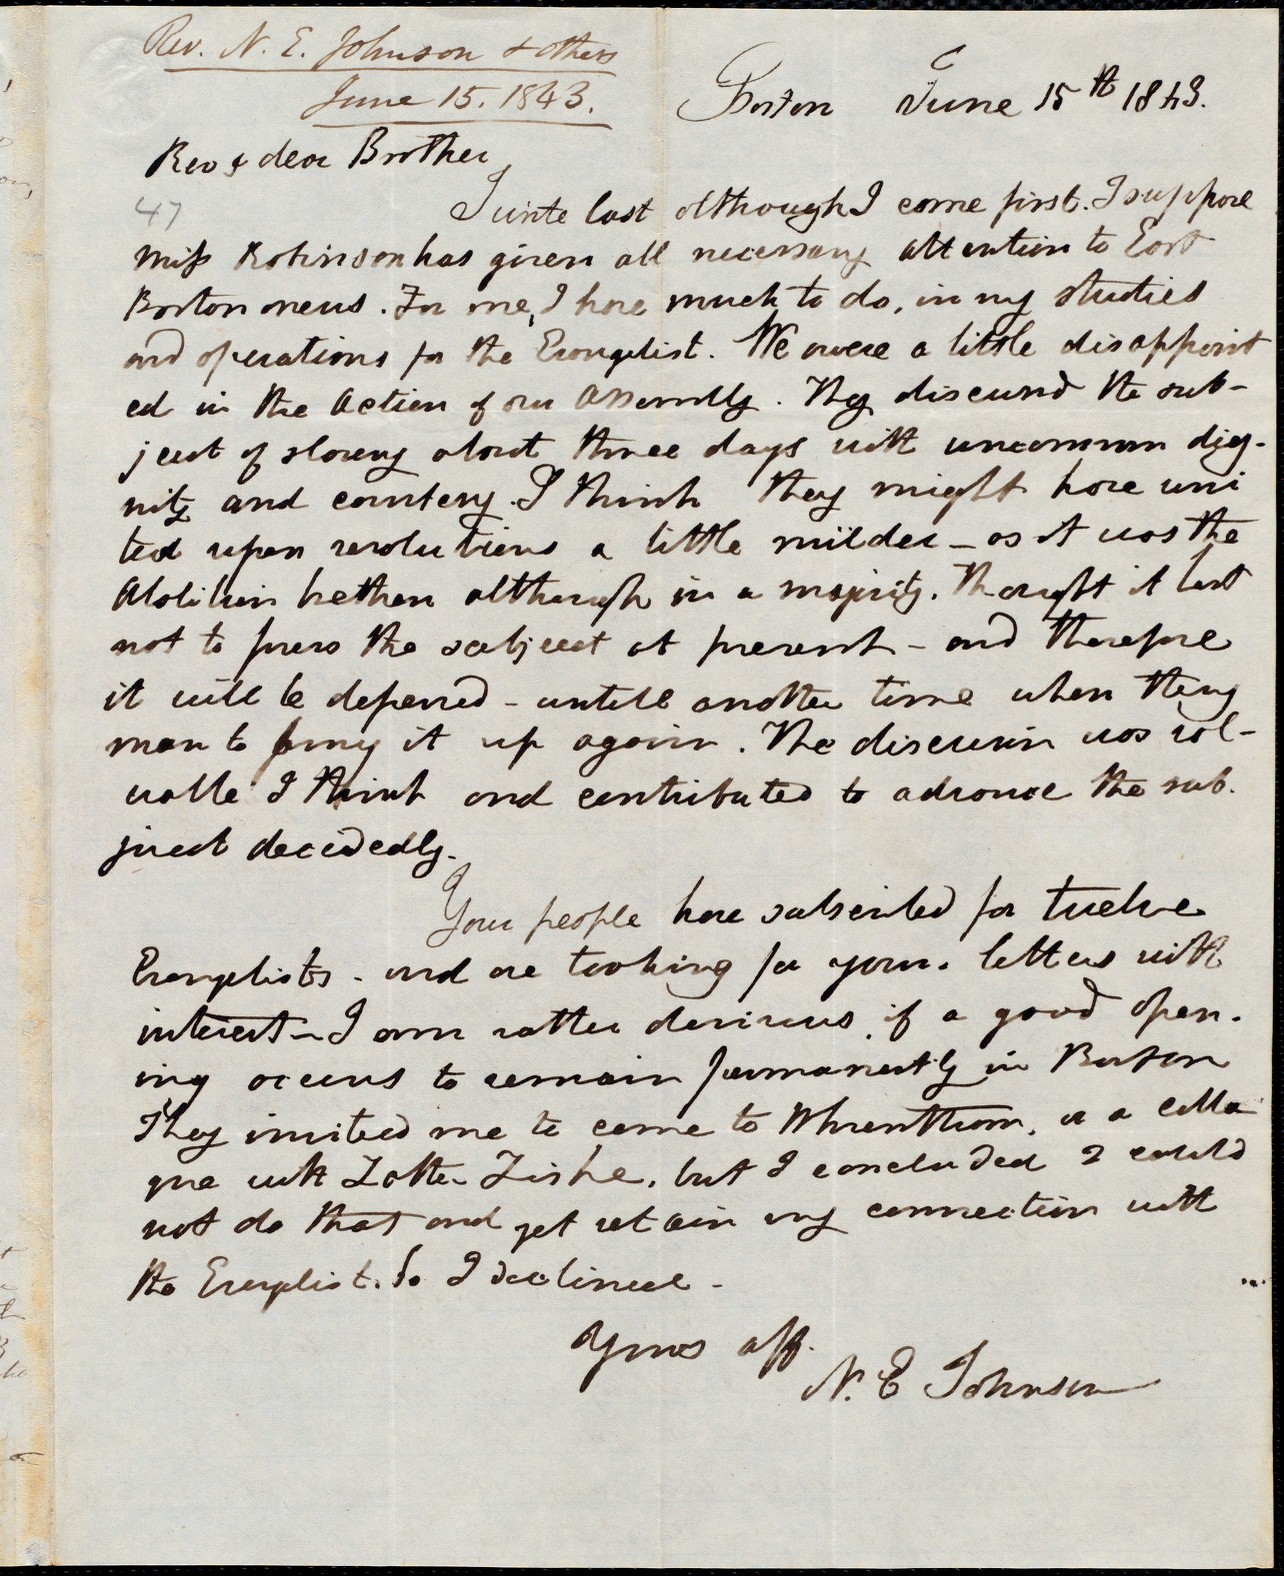 Rev. N. E. Johnson & others
June 15. 1843.
Boston June 15th 1843.
Rev & dear Brother
47
I write last although I come first. I suppose
Miss Robinson has given all necessary attention to East
Boston news. For me, I have much to do, in my studies
and operations for the Evangelist. We were a little disappoint
ed in the Action of our Assembly. They discussed the sub-
ject of slavery about three days with uncommon dig-
nity and courtesy. I think they might have uni
ted upon resolutions a little milder - as it was the
Abolition brethren although in a majority, thought it best
not to press the subject at present - and therefore
it will be deferred - untill another time when they
mean to bring it up again. The discussion was val-
uable I think and contributed to advance the sub-
ject decidedly.
Your people have subscribed for twelve
Evangelists - and are looking for your letters with
interest - I am rather desirous, if a good open-
ing occurs to remain permanently in Boston
They invited me to come to Wrenthom, as a colla
gue with Father Fiske, but I concluded I could
not do that and yet retain my connection with
the Evanglist. So I declined -
Yours aff.
N. E Johnson